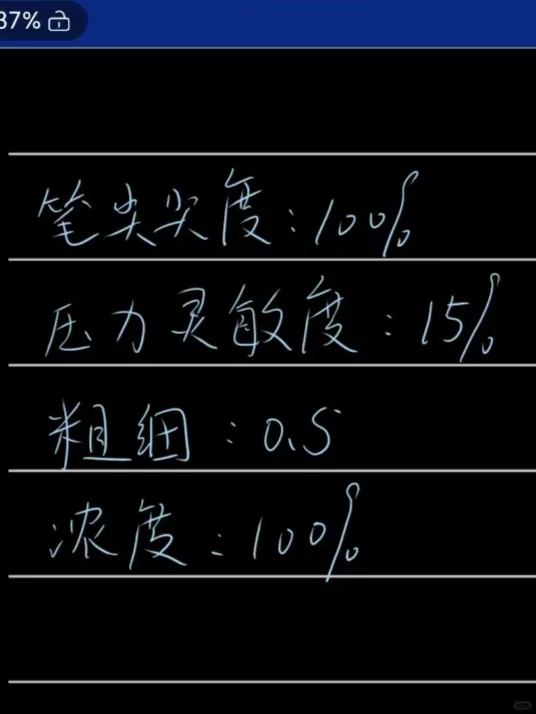 37%
笔尖尖度:100%
压力灵敏度:15%
粗细:0.5
浓度:100%